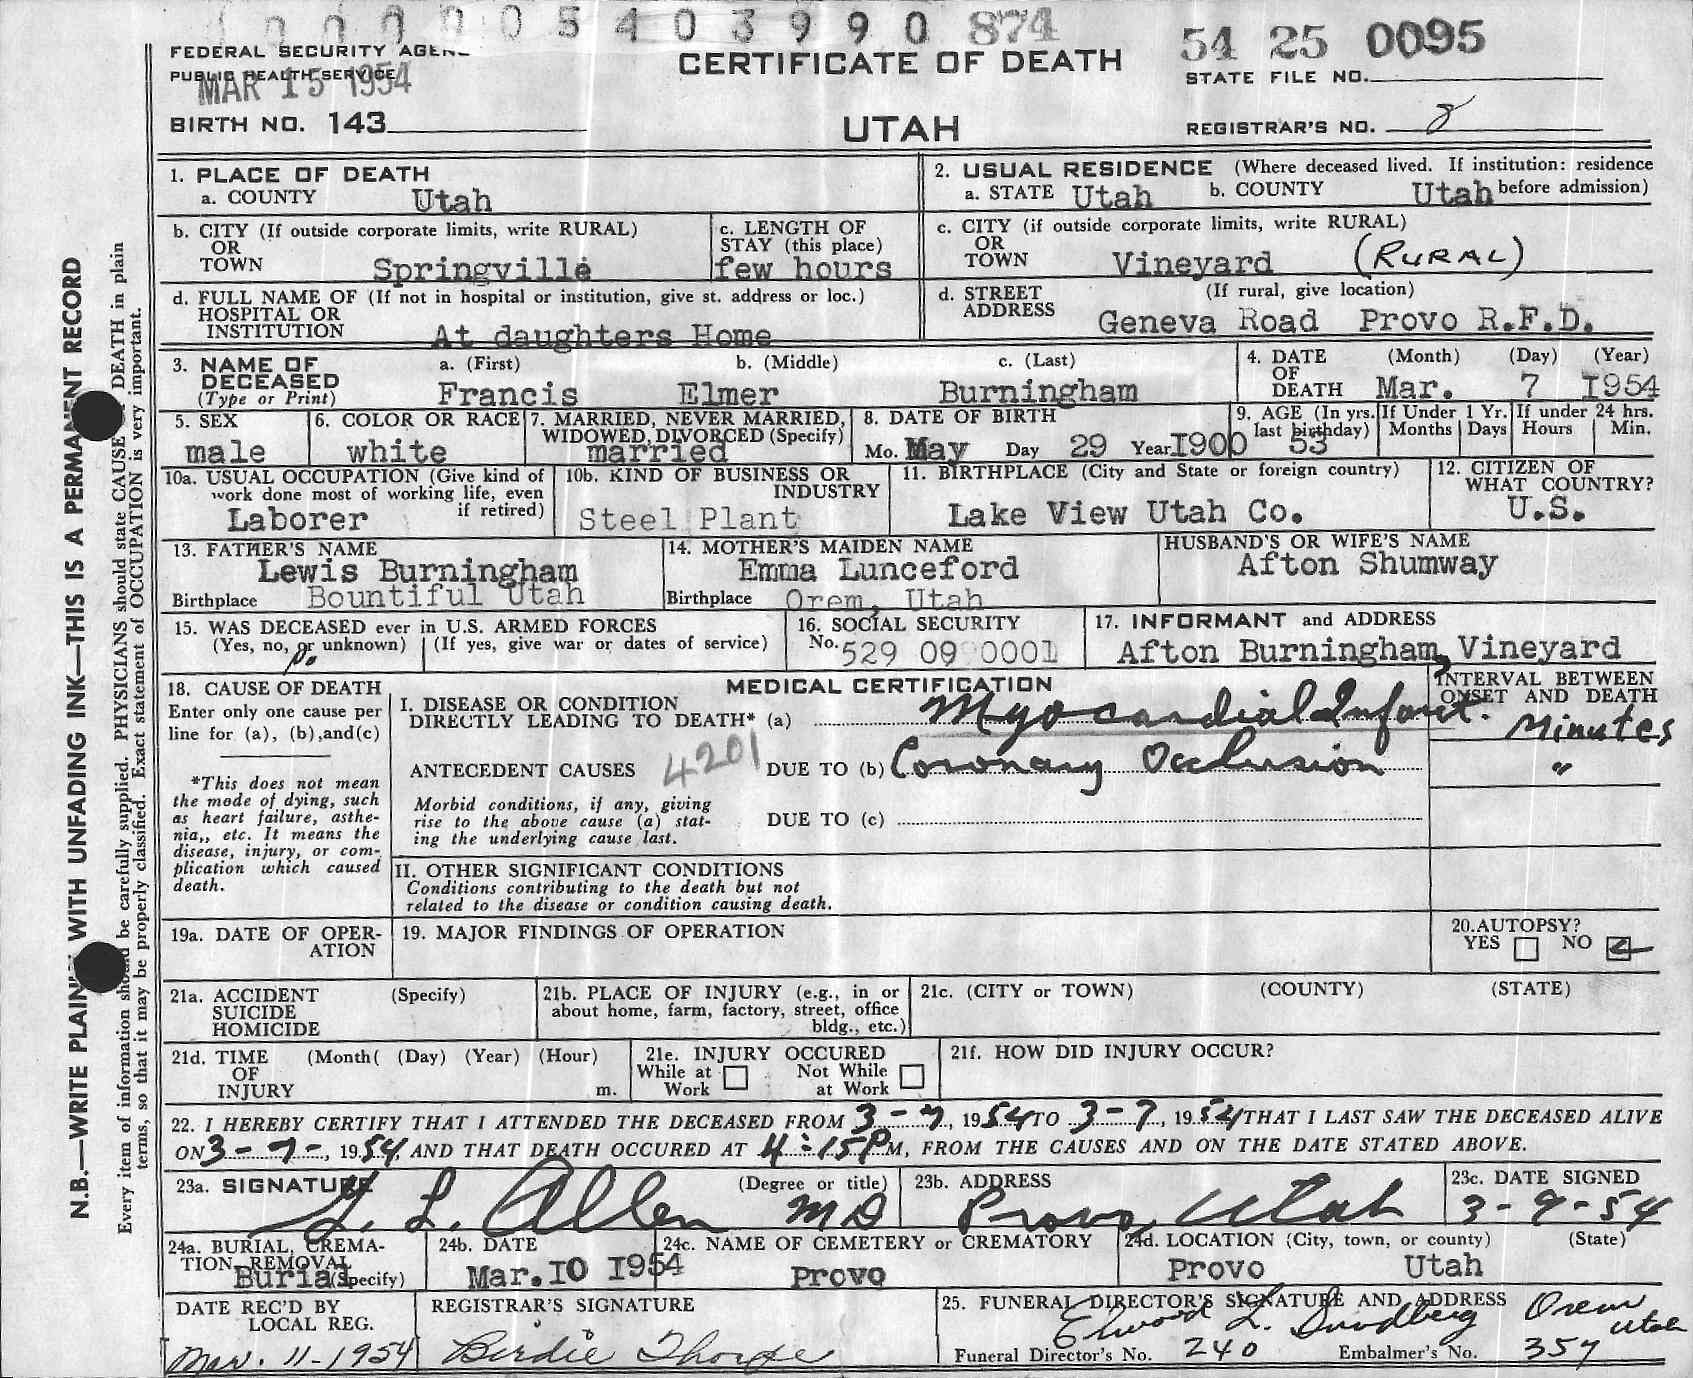 0 0 0 0 0 5 4 0 3 9 9 0 874
54 25 0095
FEDERAL SECURITY AGEN
CERTIFICATE OF DEATH
PUBLIC HEALTH SERVICE
MAR 15 1954
STATE FILE NO.
BIRTH NO. 143
UTAH
REGISTRAR'S NO. 8
N.B.—WRITE PLAINLY WITH UNFADING INK—THIS IS A PERMANENT RECORD
Every item of information should be carefully supplied. PHYSICIANS should state CAUSE DEATH in plain
terms, so that it may be properly classified. Exact statement of OCCUPATION is very important.
1. PLACE OF DEATH
a. COUNTY Utah
2. USUAL RESIDENCE (Where deceased lived. If institution: residence
a. STATE Utah b. COUNTY Utah before admission)
b. CITY (If outside corporate limits, write RURAL)
OR
TOWN Springville
c. LENGTH OF
STAY (this place)
few hours
c. CITY (if outside corporate limits, write RURAL)
OR
TOWN Vineyard (RURAL)
d. FULL NAME OF (If not in hospital or institution, give st. address or loc.)
HOSPITAL OR
INSTITUTION At daughters Home
d. STREET (If rural, give location)
ADDRESS Geneva Road Provo R.F.D.
3. NAME OF a. (First) b. (Middle) c. (Last)
DECEASED Francis Elmer Burningham
(Type or Print)
4. DATE (Month) (Day) (Year)
OF
DEATH Mar. 7 1954
5. SEX
male
6. COLOR OR RACE
white
7. MARRIED, NEVER MARRIED,
WIDOWED, DIVORCED (Specify)
married
8. DATE OF BIRTH
Mo. May Day 29 Year 1900
9. AGE (In yrs.
last birthday)
53
If Under 1 Yr.
Months Days
If under 24 hrs.
Hours Min.
10a. USUAL OCCUPATION (Give kind of
work done most of working life, even
if retired)
Laborer
10b. KIND OF BUSINESS OR
INDUSTRY
Steel Plant
11. BIRTHPLACE (City and State or foreign country)
Lake View Utah Co.
12. CITIZEN OF
WHAT COUNTRY?
U.S.
13. FATHER'S NAME
Lewis Burningham
Birthplace Bountiful Utah
14. MOTHER'S MAIDEN NAME
Emma Lunceford
Birthplace Orem, Utah
HUSBAND'S OR WIFE'S NAME
Afton Shumway
15. WAS DECEASED ever in U.S. ARMED FORCES
(Yes, no, or unknown) (If yes, give war or dates of service)
no
16. SOCIAL SECURITY
No. 529 09 0001
17. INFORMANT and ADDRESS
Afton Burningham, Vineyard
18. CAUSE OF DEATH
Enter only one cause per
line for (a), (b), and (c)
*This does not mean
the mode of dying, such
as heart failure, asthe-
nia,, etc. It means the
disease, injury, or com-
plication which caused
death.
MEDICAL CERTIFICATION
I. DISEASE OR CONDITION
DIRECTLY LEADING TO DEATH* (a) Myocardial Infarct.
4201
ANTECEDENT CAUSES DUE TO (b) Coronary Occlusion
Morbid conditions, if any, giving
rise to the above cause (a) stat-
ing the underlying cause last.
DUE TO (c)
INTERVAL BETWEEN
ONSET AND DEATH
Minutes
"
II. OTHER SIGNIFICANT CONDITIONS
Conditions contributing to the death but not
related to the disease or condition causing death.
19a. DATE OF OPER-
ATION
19. MAJOR FINDINGS OF OPERATION
20. AUTOPSY?
YES NO
21a. ACCIDENT (Specify)
SUICIDE
HOMICIDE
21b. PLACE OF INJURY (e.g., in or
about home, farm, factory, street, office
bldg., etc.)
21c. (CITY or TOWN) (COUNTY) (STATE)
21d. TIME (Month( (Day) (Year) (Hour)
OF
INJURY m.
21e. INJURY OCCURED
While at Not While
Work at Work
21f. HOW DID INJURY OCCUR?
22. I HEREBY CERTIFY THAT I ATTENDED THE DECEASED FROM 3-7, 1954 TO 3-7, 1954 THAT I LAST SAW THE DECEASED ALIVE
ON 3-7-, 1954, AND THAT DEATH OCCURED AT 4:15 P M, FROM THE CAUSES AND ON THE DATE STATED ABOVE.
23a. SIGNATURE (Degree or title)
L. Allen MD
23b. ADDRESS
Provo, Utah
23c. DATE SIGNED
3-9-54
24a. BURIAL, CREMA-
TION, REMOVAL
Burial (Specify)
24b. DATE
Mar. 10 1954
24c. NAME OF CEMETERY or CREMATORY
Provo
24d. LOCATION (City, town, or county) (State)
Provo Utah
DATE REC'D BY
LOCAL REG.
Mar. 11-1954
REGISTRAR'S SIGNATURE
Birdie Thorpe
25. FUNERAL DIRECTOR'S SIGNATURE AND ADDRESS
Elwood L. Sundberg Orem
Utah
Funeral Director's No. 240 Embalmer's No. 357